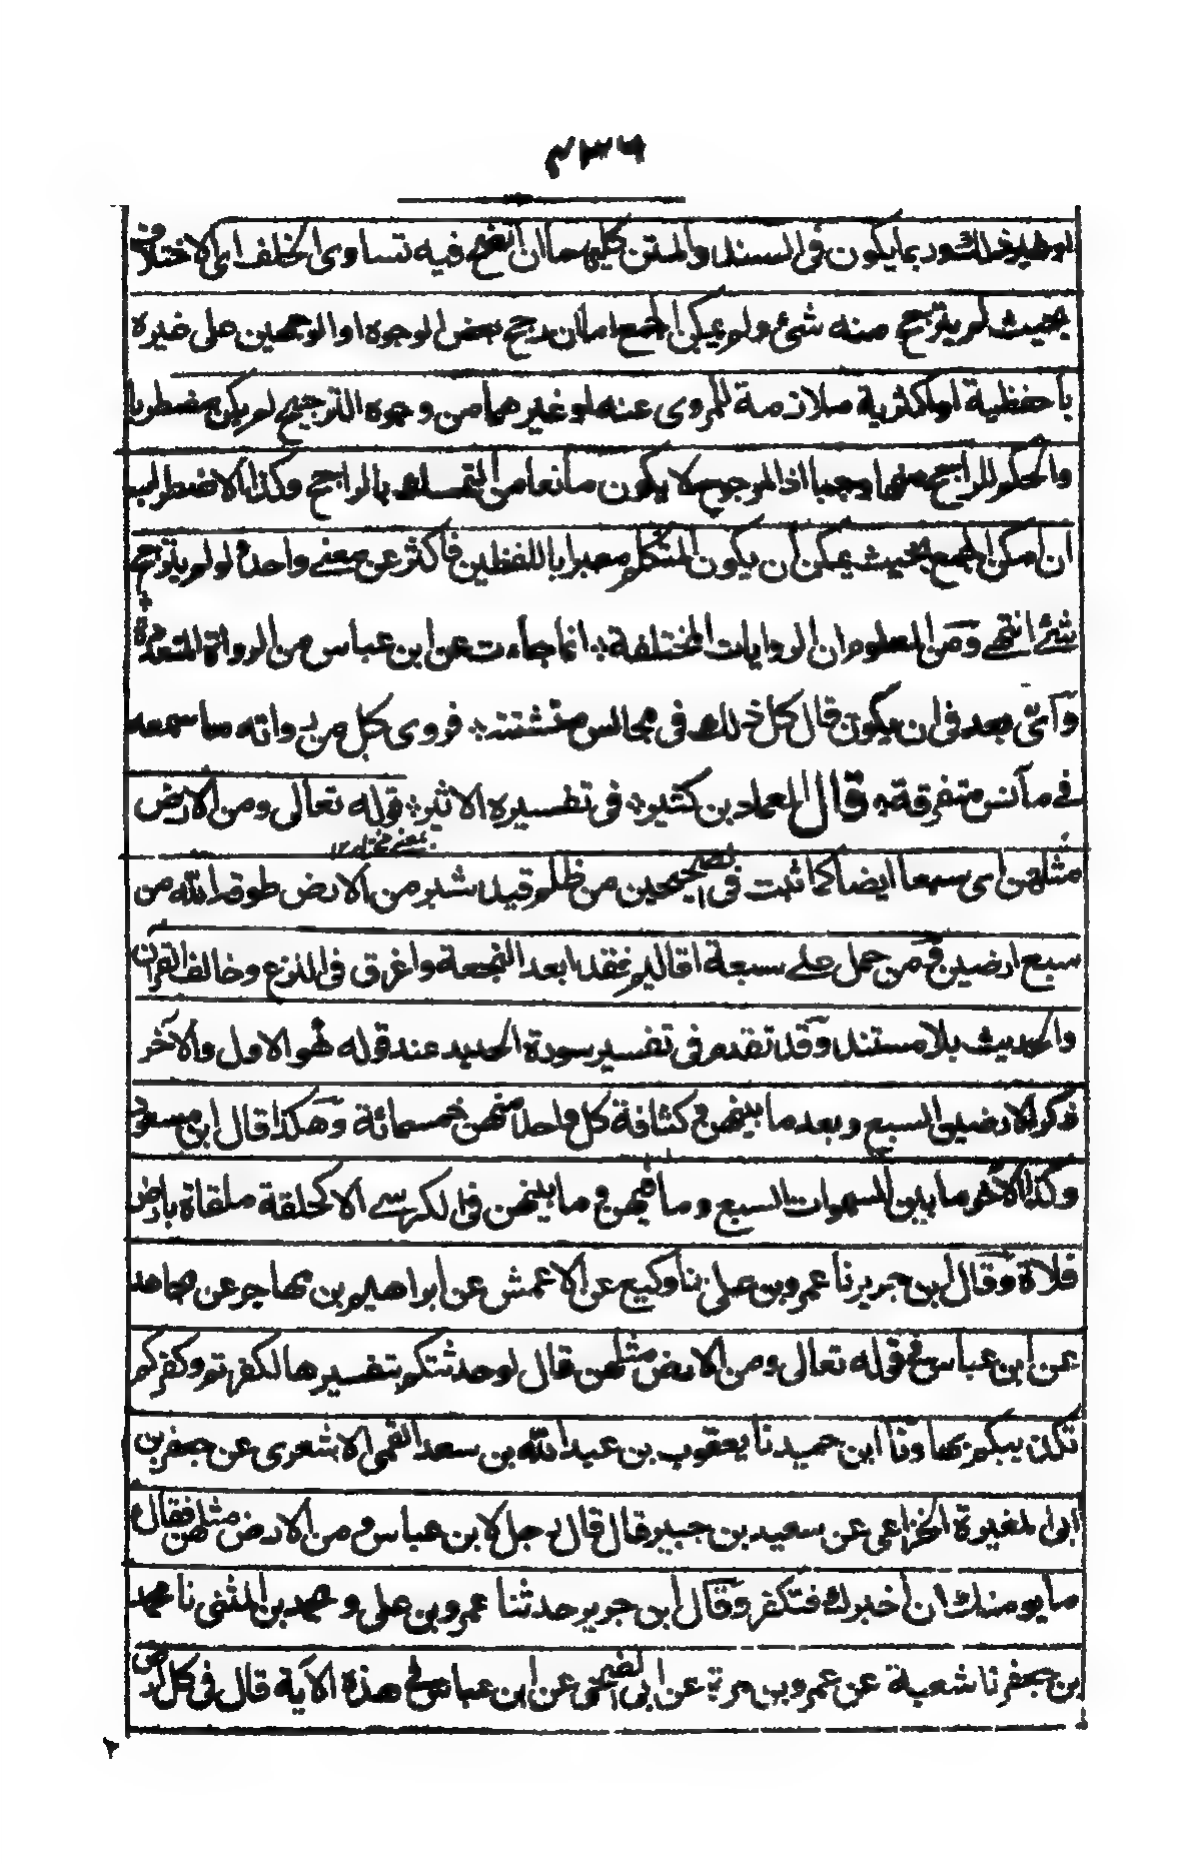 ٢٣٦
بما يكون في السند والمتن كليهما ان اتضح فيه تساوى الخلف اى الاختلاف
بحيث لم يترجح منه شئ ولم يمكن الجمع اما ان رجح بعض الوجوه او الوجهين على غيره
باحفظية او اكثرية ملازمة للمروى عنه او غيرهما من وجوه الترجيح لم يكن مضطربا
والحكم للراجح منها وجبا اذ المرجوح لا يكون مانعا من التمسك بالراجح وكذا لا اضطراب
ان امكن الجمع بحيث يمكن ان يكون المتكلم معبرا باللفظين فاكثر عن معنى واحد ولو لم يترجح
شئ انتهى ومن المعلوم ان الروايات المختلفة انما جاءت عن ابن عباس من الرواة المتعددة
وأتى بعد في ان يكون قال كل ذلك في مجالس متشتتة فروى كل من رواته ما سمعه
في مآنس متفرقة قال العماد بن كثير في تفسيره الاثير قوله تعالى ومن الارض
مثلهن اى سبعا ايضا كما ثبت في الصحيحين من ظلم قيد شبر من الارض طوقه الله من
سبع ارضين ومن حمل على سبعة اقاليم فقد ابعد النجعة واغرق في المنزع وخالف القرآن
والحديث بلا مستند وقد تقدم في تفسير سورة الحديد عند قوله هو الاول والآخر
ذكر الارضين السبع وبعد ما بينهن وكثافة كل واحد منهن خمسمائة وهكذا قال ابن مسعود
وكذا الآخر ما بين السموات السبع وما فيهن وما بينهن في الكرسى الا كحلقة ملقاة بارض
فلاة وقال ابن جرير نا عمرو بن على نا وكيع عن الاعمش عن ابراهيم بن مهاجر عن مجاهد
عن ابن عباس في قوله تعالى ومن الارض مثلهن قال لو حدثتكم بتفسيرها لكفرتم وكفركم
تكذيبكم بها ونا ابن حميد نا يعقوب بن عبد الله بن سعد القمى الاشعرى عن جعفر بن
ابى المغيرة الخزاعى عن سعيد بن جبير قال قال رجل لابن عباس ومن الارض مثلهن فقال
ما يومنك ان اخبرك فتكفر وقال ابن جرير حدثنا عمرو بن على ومحمد بن المثنى نا محمد
بن جعفر نا شعبة عن عمرو بن مرة عن ابى الضحى عن ابن عباس في هذه الآية قال في كل ارض